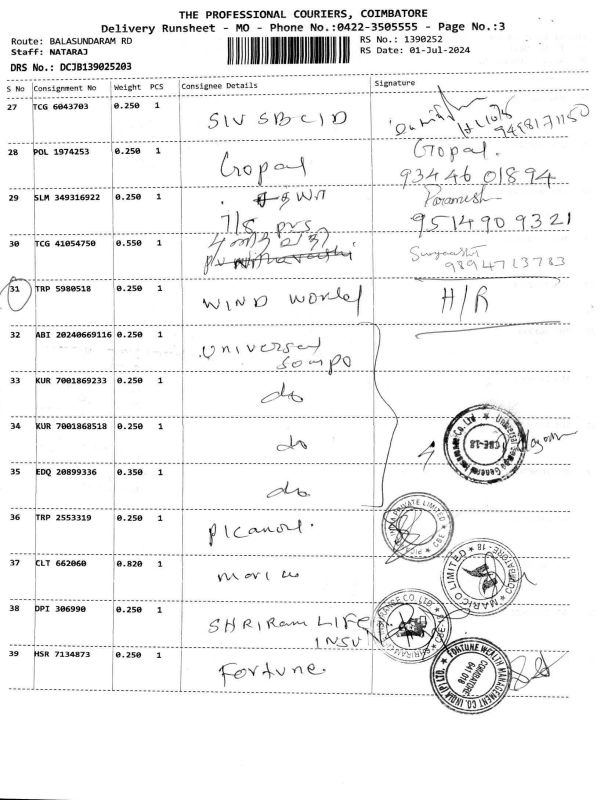 THE PROFESSIONAL COURIERS, COIMBATORE
Delivery Runsheet - MO - Phone No.:0422-3505555 - Page No.:3
Route: BALASUNDARAM RD
RS No.: 1390252
Staff: NATARAJ
RS Date: 01-Jul-2024
DRS No.: DCJB139025203
S No Consignment No Weight PCS Consignee Details Signature
27 TCG 6043703 0.250 1 SIV SBCID
9498171150
28 POL 1974253 0.250 1 Gopal Gopal.
93446 01894
29 SLM 349316922 0.250 1 Paramesh
718 pvs 9514909321
30 TCG 41054750 0.550 1
9894713733
31 TRP 5980518 0.250 1 WIND World H/R
32 ABI 20240669116 0.250 1 Universal
Sompo
33 KUR 7001869233 0.250 1 do
34 KUR 7001868518 0.250 1 do
4
Universal Sompo General Insurance Co. Ltd.
CBE-18
35 EDQ 20899336 0.350 1 do
36 TRP 2553319 0.250 1 Picanol.
PRIVATE LIMITED
CBE
37 CLT 662060 0.820 1 Marico
MARICO LIMITED
COIMBATORE - 18
38 DPI 306990 0.250 1 SHRIRam LIFE
INSU
39 HSR 7134873 0.250 1 Fortune.
FORTUNE WEALTH MANAGEMENT CO. INDIA (P) LTD.
COIMBATORE
641 018